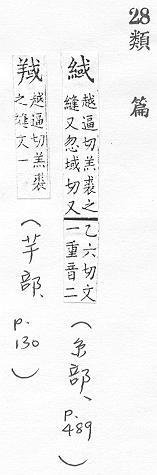 28 類篇
緎 越逼切羔裘之
縫又忽域切又
乙六切文
一重音二
(糸部, p.489)
越逼切羔裘
之縫文一
(羊部, p.130)